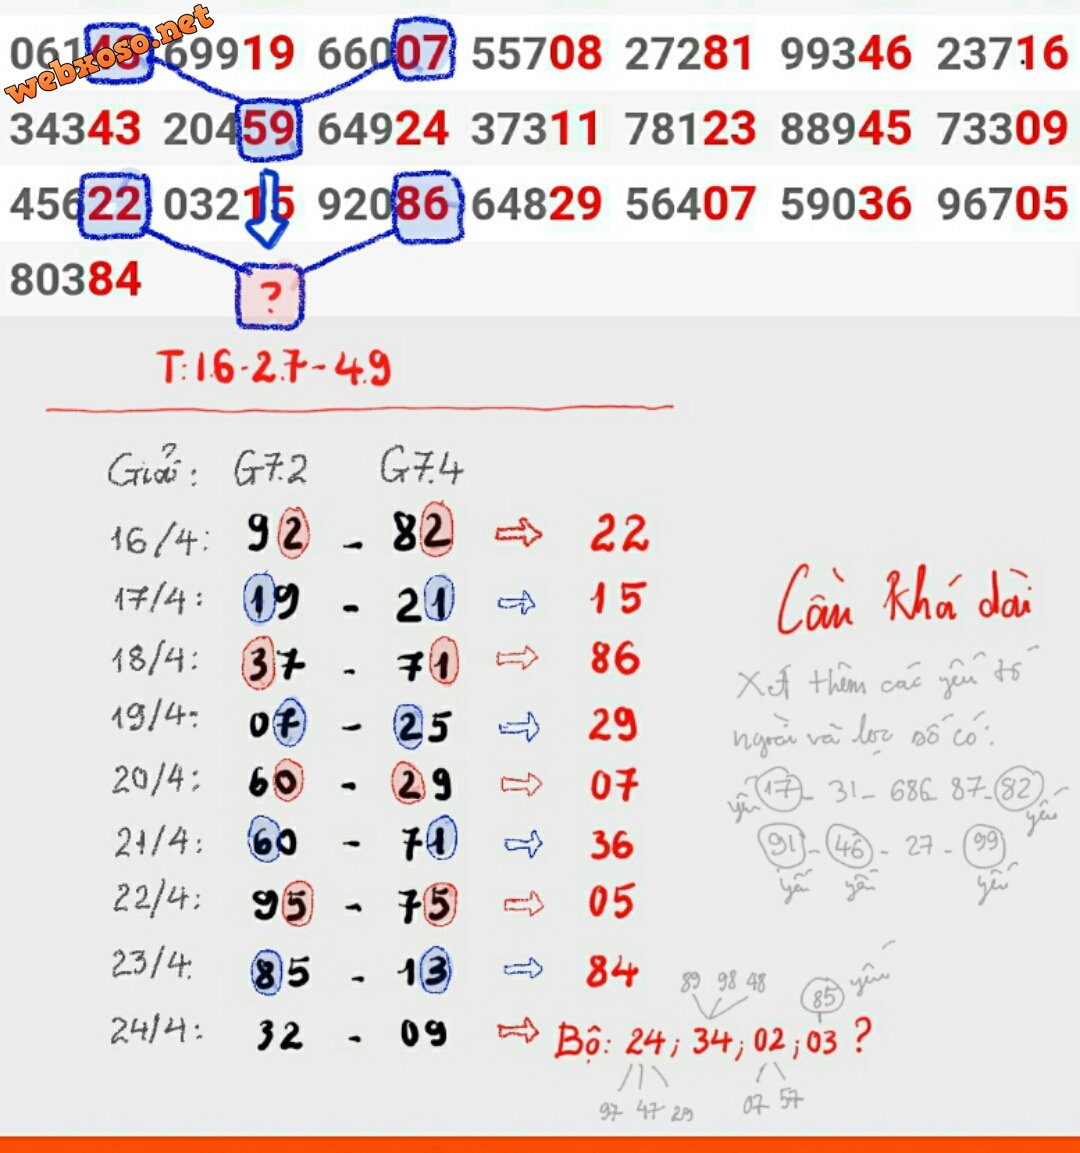 webxoso.net
06148 69919 66007 55708 27281 99346 23716
34343 20459 64924 37311 78123 88945 73309
45622 03215 92086 64829 56407 59036 96705
80384 ?
T: 1.6 - 2.7 - 4.9
Giải: G7.2 - G7.4
16/4: 92 - 82 ⇨ 22
17/4: 19 - 21 ⇨ 15
18/4: 37 - 71 ⇨ 86
19/4: 07 - 25 ⇨ 29
20/4: 60 - 29 ⇨ 07
21/4: 60 - 71 ⇨ 36
22/4: 95 - 75 ⇨ 05
23/4: 85 - 13 ⇨ 84
24/4: 32 - 09 ⇨ Bộ: 24; 34; 02; 03 ?
89 98 48
85 yếu
97 47 29
07 57
Cầu khá dài
Xét thêm các yếu tố
ngoài và lọc số có:
yếu 17 - 31 - 686 - 87 - 82 yếu
91 - 46 - 27 - 99
yếu yếu yếu